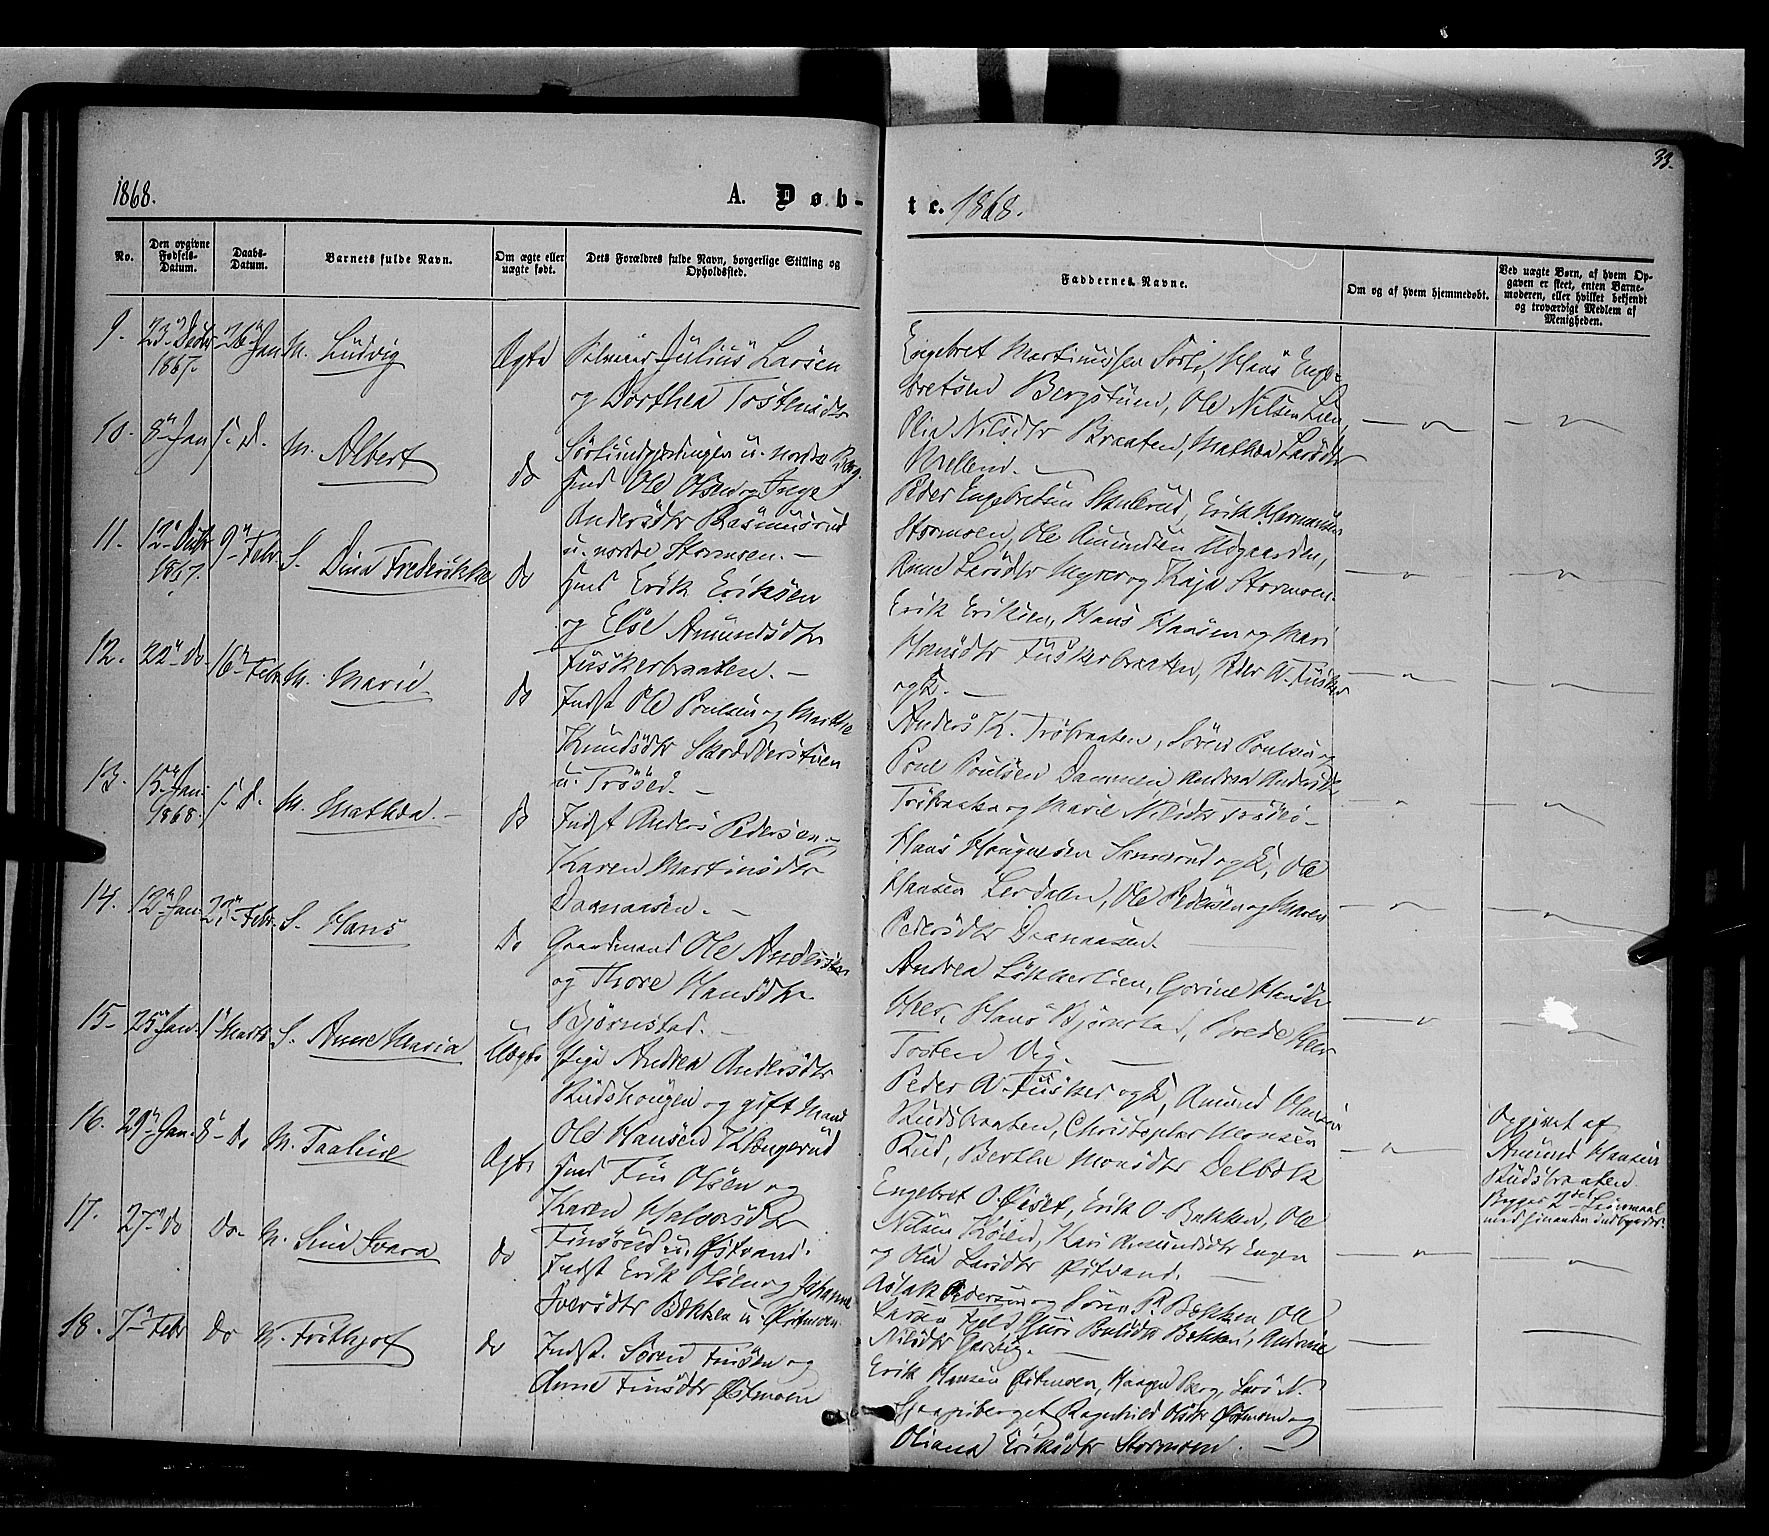 33.
1868.
A. Døb-
te. 1868.
No.
Den opgivne Fødsels-Datum.
Daabs-Datum.
Barnets fulde Navn.
Om ægte eller uægte født.
Dets Forældres fulde Navn, borgerlige Stilling og Opholdssted.
Faddernes Navne.
Om og af hvem hjemmedøbt.
Ved uægte Børn, af hvem Opgaven er skeet, enten Barnemoderen, eller hvilket bekjendt og troværdigt Medlem af Menigheden.
9. 23 Decbr 1867. 26 Jan M. Ludvig Ægte
Julius Larsen
og Dorthea Tostensdtr
Engebret Martinussen Sorli, Hans Enge-
bretsen Bergstuen, Ole Nilsen Lien,
Olia Nilsdtr Braaten, Mathea Larsdtr
10. 8 Jan s. d. M. Albert do
u. nordre Berg.
Ole Olsen og Inge
Andersdtr Rasmusrud
u. nordre Stormoen. –
Peder Engebretsen Skulerud, Erik Hermansen
Stormoen, Ole Amundsen
Anne Larsdtr Myrer og Kaja Stormoen.
11. 12 Decbr 1867. 9 Febr. S. Dina Frederikke do
Erik Eriksen
og Else Amundsdtr
Fuskerbraaten. –
Erik Eriksen, Hans Hansen og Mari
Hansdtr Fuskerbraaten, Peder A. Fusker
og K. –
12. 22 do 16 Febr M. Marie do
Indst Ole Poulsen og Marthe
Knudsdtr Skredderstuen
u. Trøsed. –
Anders K. Trøbraaten, Søren Poulsen og
Poul Poulsen Dammen Andrea Andersdtr
Trøbraaten og Marie Nilsdtr
13. 15 Jan. 1868. s. d. M. Mathea. – do
Indst Anders Pedersen og
Karen Martinsdtr
Daanaasen. –
Hans Haugnesen og K, Ole
Hansen Lerdalen, Ole Pedersen og Maren
Pedersdtr Daanaasen.
14. 12 Jan. 23 Febr. S. Hans do
Gaardmand Ole Andersen
og Thore Hansdtr
Bjørnstad. –
Andrea Løkkerlien, Gorine Hansdtr
Hans Bjørnstad, Brede
Tosten Vig. –
15. 25 Jan. 1 Marts S. Anne Maria Uægte
Pige Andrea Andersdtr
Rudshougen og gift Mand
Ole Hansen Klongerud
Peder A. Fusker og K, Amund Hansen
Rudsbraaten, Christopher Monsen
Rud, Berthe Monsdtr Delbæk
Opgivet af
Amund Hansen
Rudsbraaten.
16. 29 Jan. 8 do M. Taaline Ægte
Fin Olsen og
Karen Halvorsdtr
Finsrud u. Østvand.
Engebret O. Øiset, Erik O. Bakken, Ole
Nilsen Kari Amundsdtr Engen
og Olia Larsdtr Østvand. –
17. 27 do do M. Lina Ivara do
Indst Erik Olsen og Johanne
Iversdtr Bakken u. Østmoen
Aslak Pedersen og Søren P. Bakken, Ole
Larsen Guri Paulsdtr Bakken, Andrine
Nilsdtr
18. 7 Febr do M. Frithjof do
Indst. Søren Finsen og
Anne Finsdtr Østmoen
Erik Hansen Østmoen, Haagen Berg, Lars N.
Ragnhild Olsdtr Østmoen og
Oliana Eriksdtr Stormoen. –